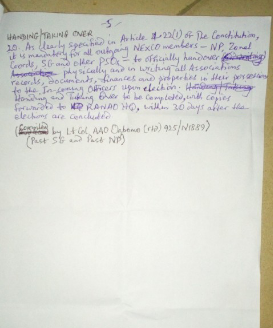 -5-
HANDING/TAKING OVER
20. As clearly specified in Article 22(1) of the Constitution,
it is mandatory for all outgoing NEXCO members - NP, Zonal
Coords, SG and other PSOs - to officially handover
physically and in writing all Associations
records, documents, finances and properties in their possession
to the In-coming Officers upon election.
Handing and Taking Over to be completed, with copies
forwarded to RANAO HQ, within 30 days after the
elections are concluded
(Compiled by Lt Col AAO (rtd) 925/N1889)
(Past SG and Past NP)